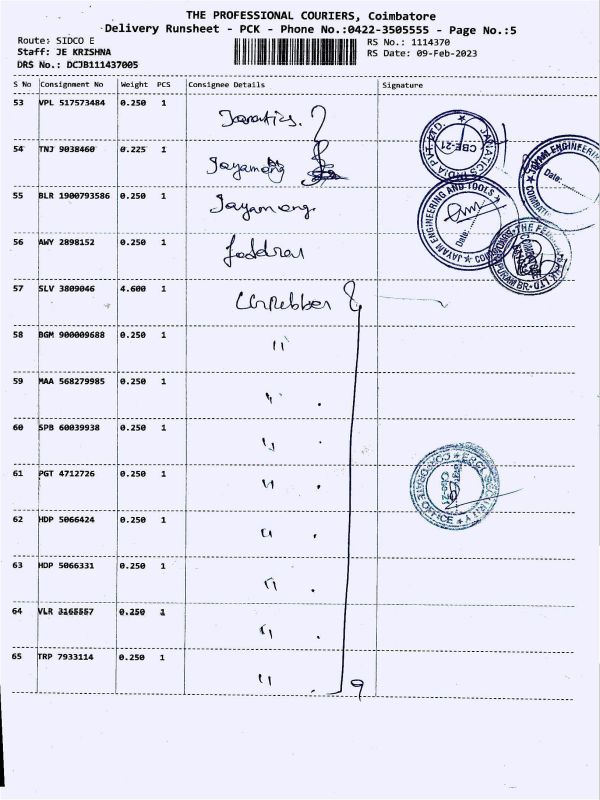 THE PROFESSIONAL COURIERS, Coimbatore
Delivery Runsheet - PCK - Phone No.:0422-3505555 - Page No.:5
Route: SIDCO E
RS No.: 1114370
Staff: JE KRISHNA
RS Date: 09-Feb-2023
DRS No.: DCJB111437005
S No Consignment No Weight PCS Consignee Details Signature
53 VPL 517573484 0.250 1
54 TNJ 9038460 0.225 1
55 BLR 1900793586 0.250 1
56 AWY 2898152 0.250 1
57 SLV 3809046 4.600 1
58 BGM 900009688 0.250 1 "
59 MAA 568279985 0.250 1 "
60 SPB 60039938 0.250 1 "
61 PGT 4712726 0.250 1 "
62 HDP 5066424 0.250 1 "
63 HDP 5066331 0.250 1 "
64 VLR 3165557 0.250 1 "
65 TRP 7933114 0.250 1 "
9
JANATICS INDIA PVT. LTD.
CBE-21
JAYAM ENGINEERING AND TOOLS
Date:
JAYAM ENGINEERING
Date:
CORPORATE OFFICE